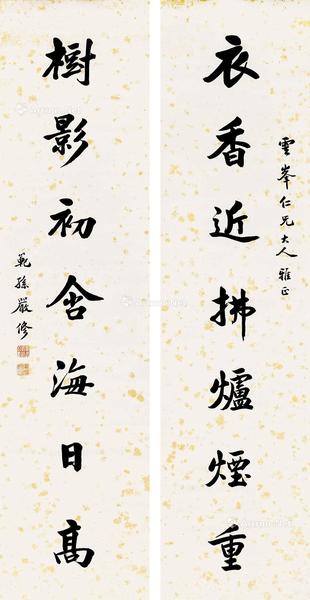 雲峯仁兄大人雅正
衣香近拂爐煙重
樹影初含海日高
範孫嚴修